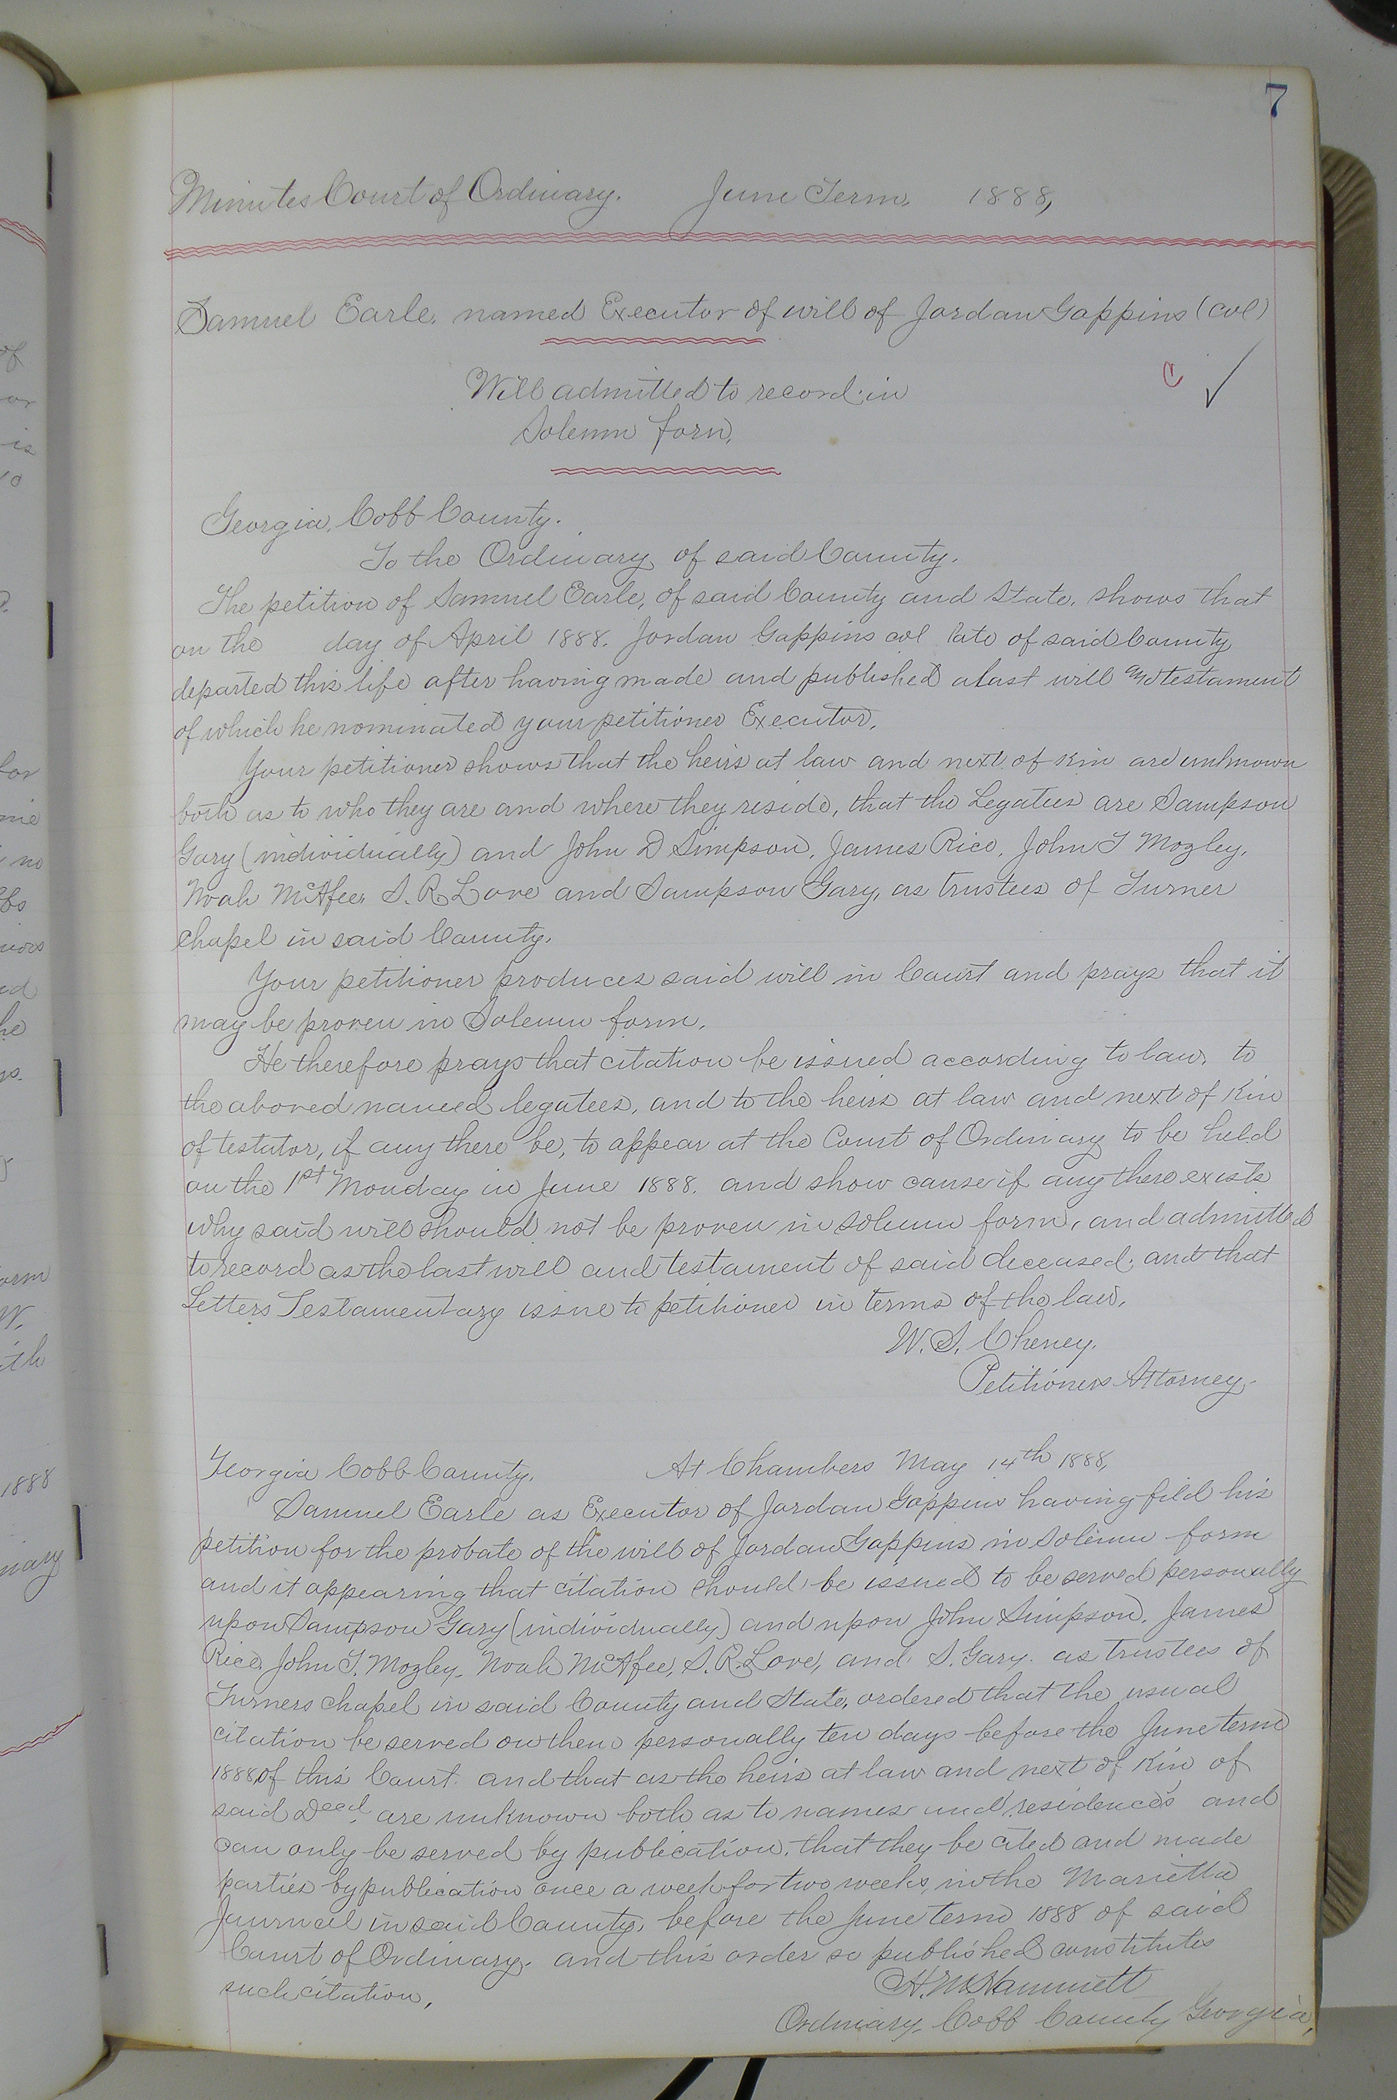 7
Minutes Court of Ordinary. June Term, 1888,
Samuel Earle, named Executor of will of Jordan Gappins (col)
Will admitted to record in
Solemn form,
Georgia, Cobb County.
To the Ordinary of said County.
The petition of Samuel Earle, of said County and State, shows that
on the day of April 1888. Jordan Gappins col late of said County
departed this life after having made and published a last will and testament
of which he nominated your petitioner Executor.
Your petitioner shows that the heirs at law and next of Kin are unknown
both as to who they are and where they reside, that the Legatees are Sampson
Gary (individually) and John D Simpson, James Rice, John T Mozley,
Noah McAfee, S. R. Love and Sampson Gary, as trustees of Turner
Chapel in said County.
Your petitioner produces said will in Court and prays that it
may be proven in Solemn form.
He therefore prays that citation be issued according to law, to
the aboved named legatees, and to the heirs at law and next of Kin
of testator, if any there be, to appear at the Court of Ordinary to be held
on the 1st Monday in June 1888. and show cause if any there exists
why said will should not be proven in solemn form, and admitted
to record as the last will and testament of said deceased, and that
Letters Testamentary issue to petitioner in terms of the law.
W. S. Cheney.
Petitioners Attorney.
Georgia Cobb County. At Chambers May 14th 1888,
Samuel Earle as Executor of Jordan Gappins having fild his
petition for the probate of the will of Jordan Gappins in solemn form
and it appearing that citation should be issued to be served personally
upon Sampson Gary (individually) and upon John Simpson, James
Rice, John T. Mozley, Noah McAfee, S. R. Love, and S. Gary as trustees of
Turners chapel in said County and State, ordered that the usual
citation be served on them personally ten days before the June term
1888 of this Court. and that as the heirs at law and next of Kin of
said Deed are unknown both as to names and residences and
can only be served by publication, that they be cited and made
parties by publication once a week for two weeks, in the Marietta
Journal in said County, before the June term 1888 of said
Court of Ordinary. and this order so published constitutes
such citation,
H. M. Hammett
Ordinary Cobb County Georgia,
of
or
is
to
for
me
no
ed
he
orm
W.
ith
1888
inary